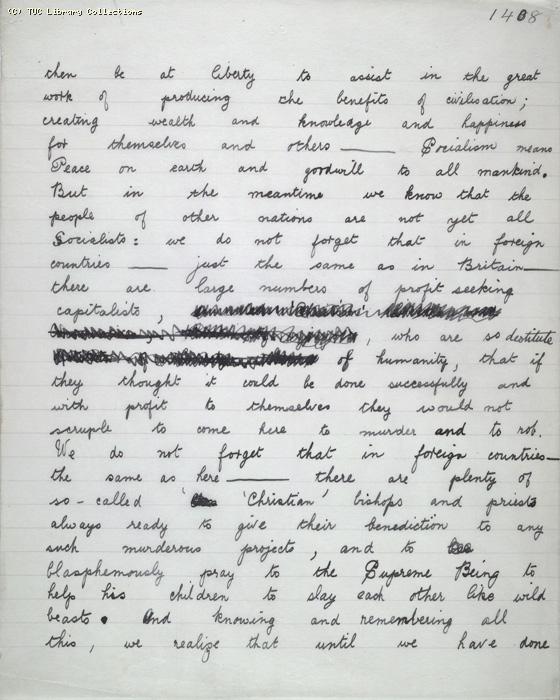 (C) TUC Library Collections
1408
then be at liberty to assist in the great
work of producing the benefits of civilisation;
creating wealth and knowledge and happiness
for themselves and others —— Socialism means
Peace on earth and goodwill to all mankind.
But in the meantime we know that the
people of other nations are not yet all
Socialists: we do not forget that in foreign
countries — just the same as in Britain —
there are large numbers of profit seeking
capitalists,
, who are so destitute
of humanity, that if
they thought it could be done successfully and
with profit to themselves they would not
scruple to come here to murder and to rob.
We do not forget that in foreign countries—
the same as here —— there are plenty of
so-called 'Christian' bishops and priests
always ready to give their benediction to any
such murderous projects, and to
blasphemously pray to the Supreme Being to
help his children to slay each other like wild
beasts. And knowing and remembering all
this, we realize that until we have done